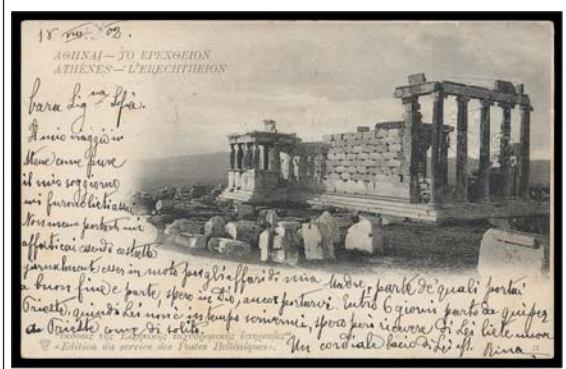 18 02.
ΑΘΗΝΑΙ — ΤΟ ΕΡΕΧΘΕΙΟΝ
ATHÈNES — L'ERECHTHEION
Cara Sig.na
Il mio viaggio in
Atene come pure
il mio soggiorno
mi furono
Non meno
affaticai essendo costretta
giornalmente esser in moto per gli affari di mia Madre, parte de' quali portai
a buon fine e parte, spero in Dio, ancor portarvi. Entro 6 giorni parto da qui per
Trieste, quindi Lei non è in tempo scrivermi, spero però ricevere di Lei liete nuove
da Trieste come di solito.
Un cordiale bacio di Lei aff. Rina
«Ἔκδοσις τῆς Ἑλληνικῆς ταχυδρομικῆς ὑπηρεσίας»
«Edition du service des Postes Helléniques».